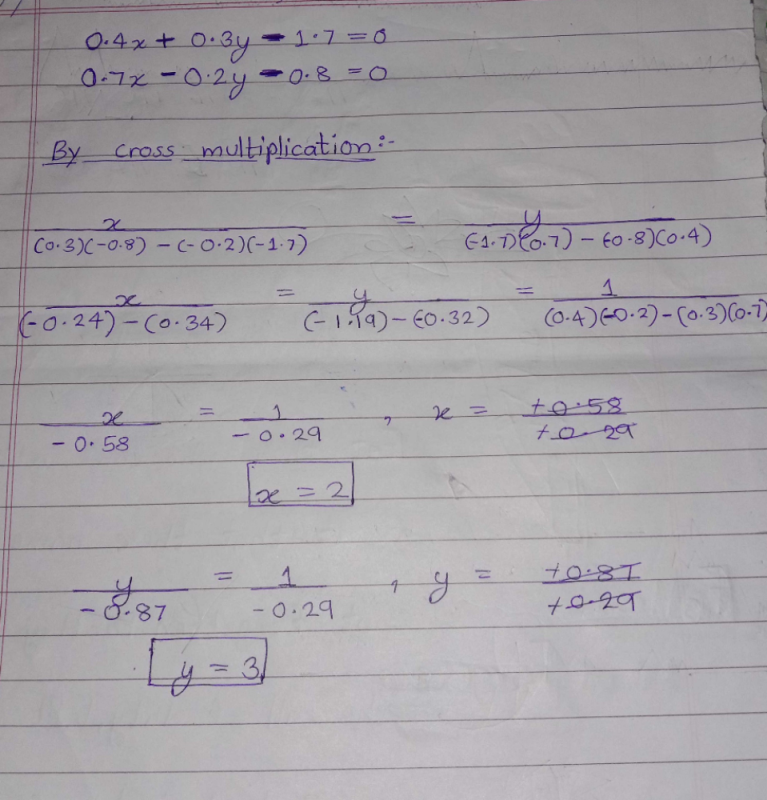 0.4x + 0.3y - 1.7 = 0
0.7x - 0.2y - 0.8 = 0
By cross multiplication:-
x / (0.3)(-0.8) - (-0.2)(-1.7) = y / (-1.7)(0.7) - (-0.8)(0.4)
x / (-0.24) - (0.34) = y / (-1.19) - (-0.32) = 1 / (0.4)(-0.2) - (0.3)(0.7)
x / -0.58 = 1 / -0.29 , x = +0.58 / +0.29
x = 2
y / -0.87 = 1 / -0.29 , y = +0.87 / +0.29
y = 3